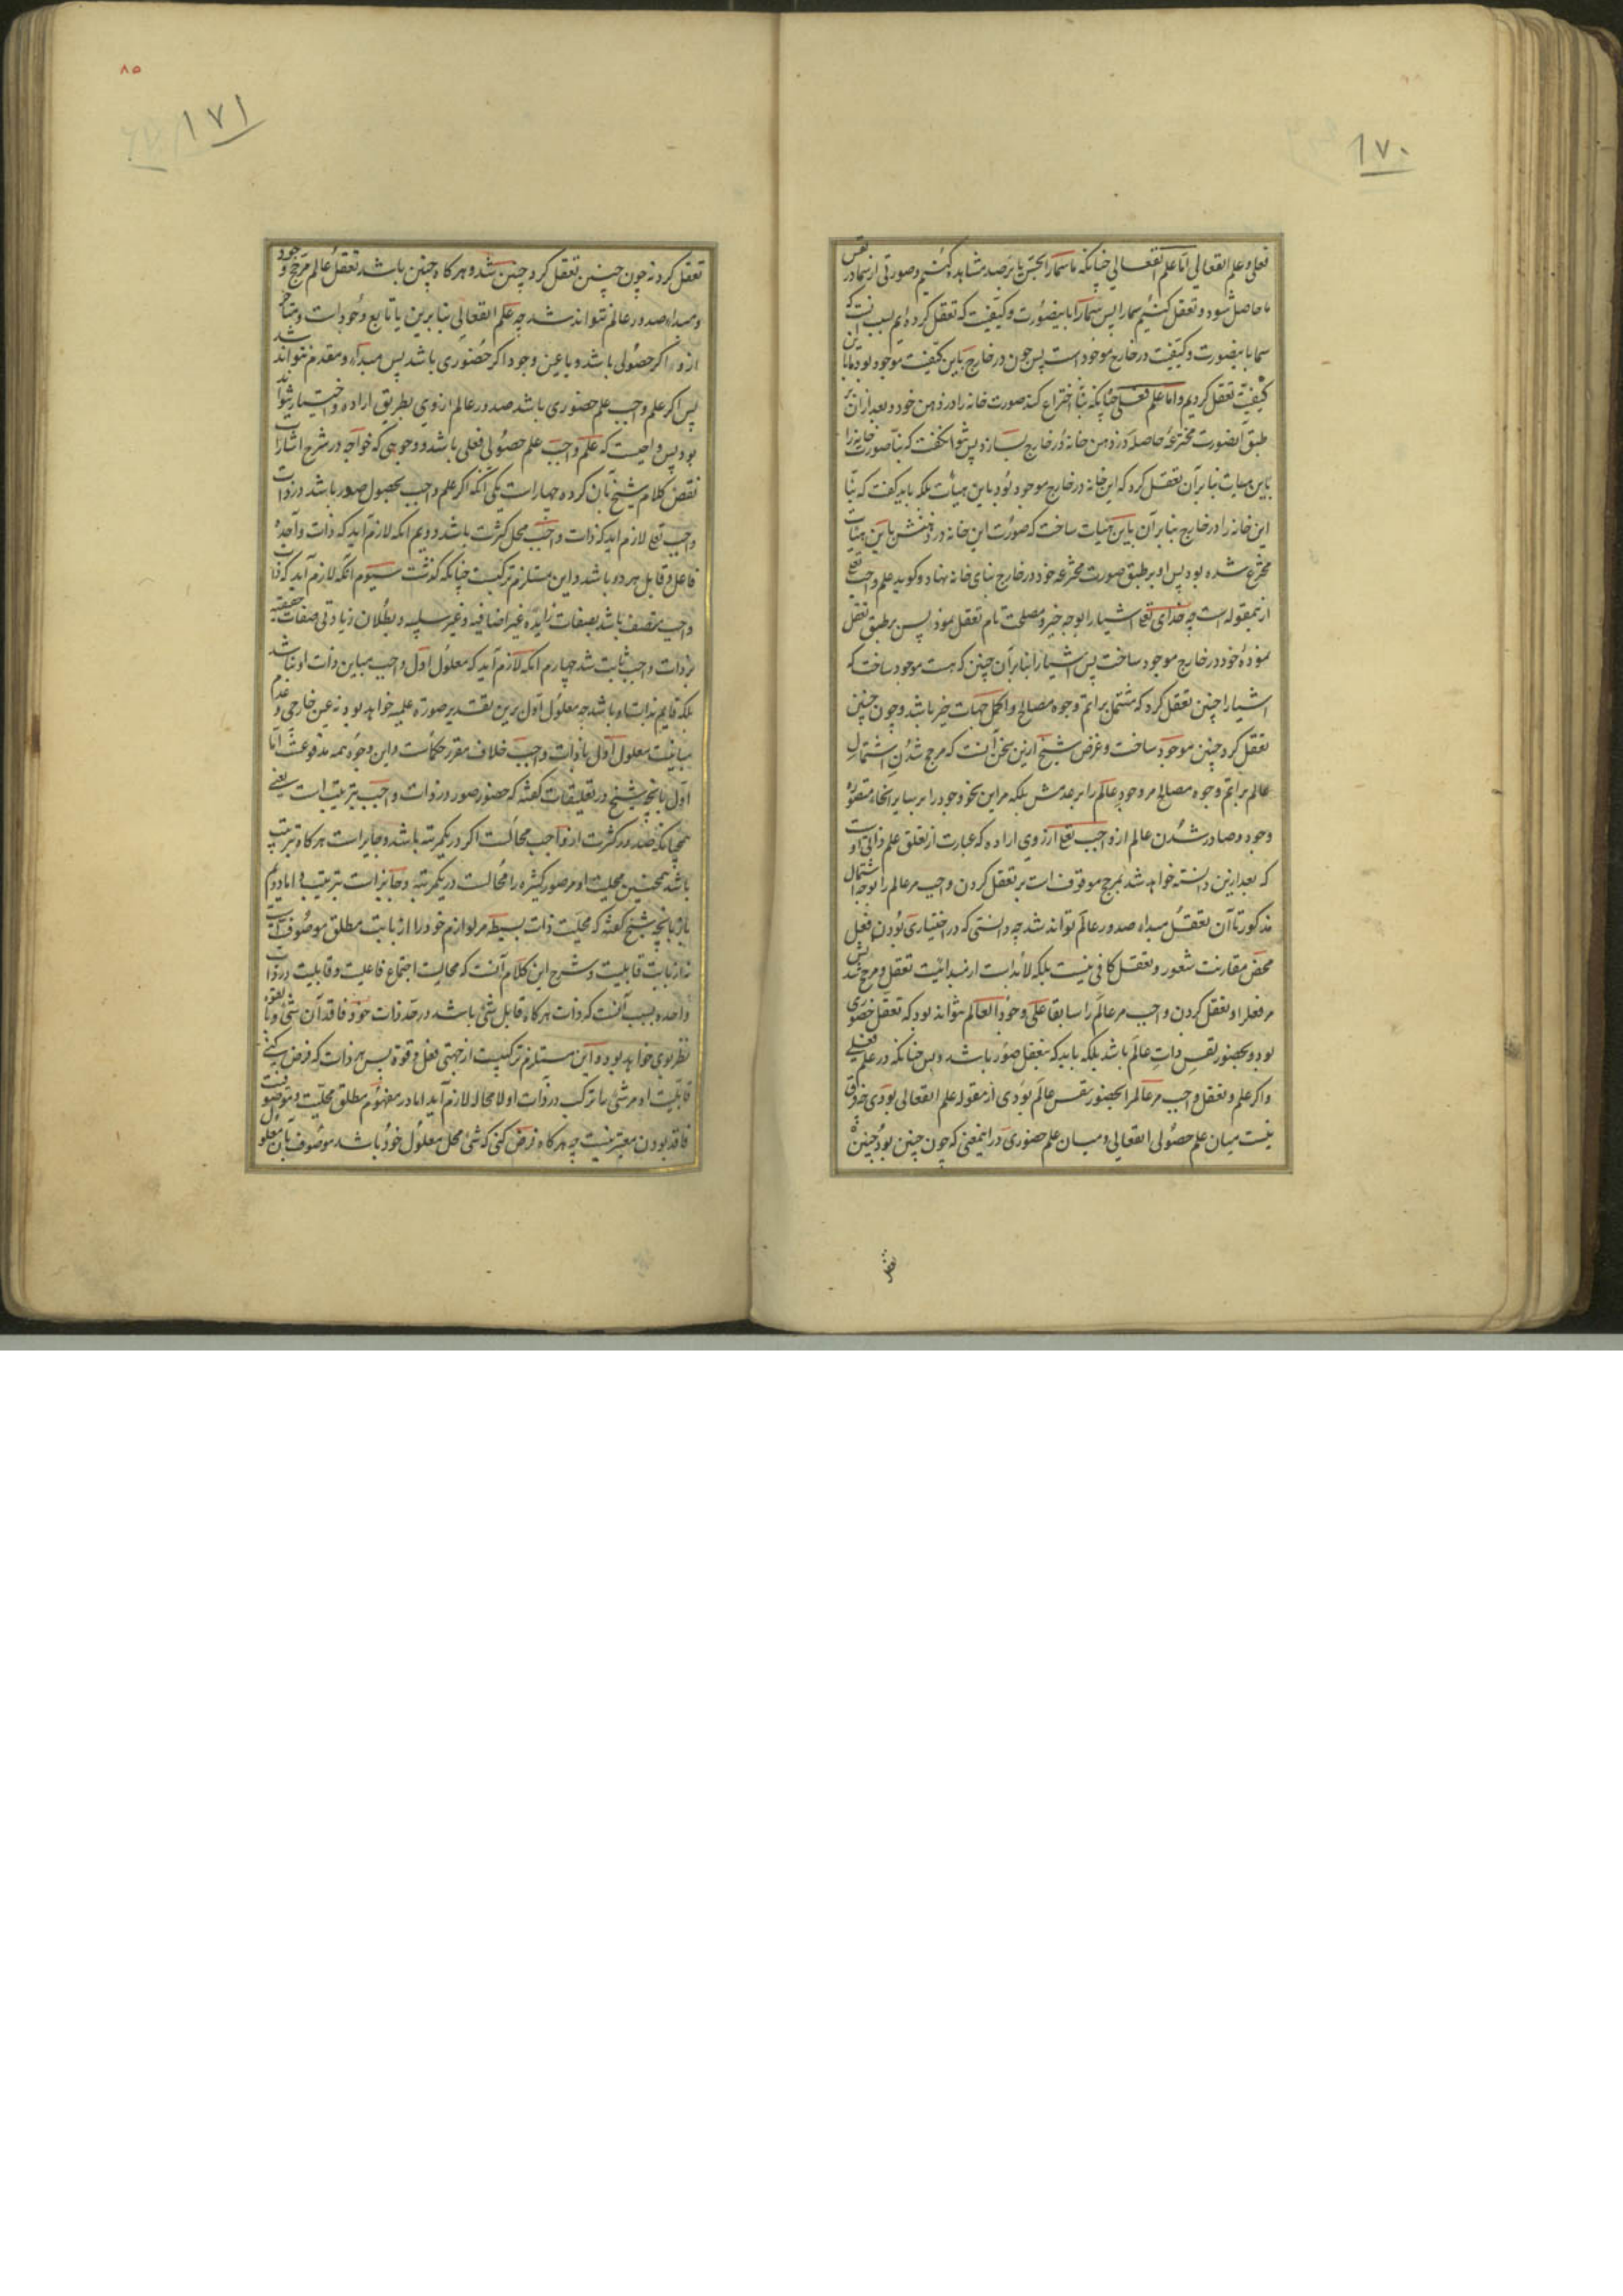 ١٧٠
فعلی و علم انفعالی اما علم انفعالی چنانکه ما سما را بحس یا برصد مشاهده کنیم و صورتی از سما در نفس
ما حاصل شود و تعقل کنیم سما را پس سما را باینصورت و کیفیت که تعقل کرده ایم بسبب آنست که
سما باینصورت و کیفیت در خارج موجود است پس چون در خارج باین کیفیت موجود بود ما باین
کیفیت تعقل کردیم و اما علم فعلی چنانکه بنا اختراع کند صورت خانه را در ذهن خود و بعد از آن بر
طبق آنصورت مخترعه حاصله در ذهن خانه در خارج بسازد پس نتوان گفت که بنا صورت خانه را
باین هیات بنا بر آن تعقل کرد که این خانه در خارج موجود بود باین هیات بلکه باید گفت که بنا
این خانه را در خارج بنا بر آن باین هیات ساخت که صورت این خانه در ذهنش باین هیات
مخترع شده بود پس او بر طبق صورت مخترعه خود در خارج بنای خانه نهاد و گوید علم واجب تعالی
ازینمقوله است چه خدای تعالی اشیا را بوجه خیر و مصلحت تام تعقل نمود پس بر طبق تعقل
نموده خود در خارج موجود ساخت پس اشیا را بنا بر آن چنین که هست موجود ساخت که
اشیا را چنین تعقل کرد که مشتمل بر اتم وجوه مصالح و اکمل جهات خیر باشد و چون چنین
تعقل کرد چنین موجود ساخت و غرض شیخ ازین سخن آنست که مرجح شدن اشتمال
عالم بر اتم وجوه مصالح مر وجود عالم را بر عدمش بلکه مر این نحو وجود را بر سایر انحاء متصوره
وجود و صادر شدن عالم از واجب تعالی از روی اراده که عبارت از تعلق علم ذاتی اوست
که بعد ازین دانسته خواهد شد بمرجح موقوف است بر تعقل کردن واجب مر عالم را بوجه اشتمال
مذکور تا آن تعقل مبداء صدور عالم تواند شد چه دانستی که در اختیاری بودن فعل
محض مقارنت شعور و تعقل کافی نیست بلکه لابد است از مبدائیت تعقل و مرجح شدنش
مر فعل را و تعقل کردن واجب مر عالم را سابقا علی وجود العالم نتواند بود که تعقل حضوری
بود و بحضور نفس ذات عالم باشد بلکه باید که بتعقل صور باشد و بس چنانکه در علم فعلی
و اگر علم و تعقل واجب مر عالم را بحضور نفس عالم بودی از مقوله علم انفعالی بودی چه فرق
نیست میان علم حصولی انفعالی و میان علم حضوری در اینمعنی که چون چنین بود چنین
تعقل
٨٥
١٧١
تعقل کرد نه چون چنین تعقل کرد چنین شد و هر گاه چنین باشد تعقل عالم مرجح وجود
و مبداء صدور عالم نتواند شد چه علم انفعالی بنا برین یا تابع وجود است و متاخر
از و اگر حصولی باشد و یا عین وجود اگر حضوری باشد پس مبداء و مقدم نتواند شد
پس اگر علم واجب علم حضوری باشد صدور عالم از وی بطریق اراده و اختیار نتواند
بود پس واجبست که علم واجب علم حصولی فعلی باشد و وجوهی که خواجه در شرح اشارات
نقض کلام شیخ بآن کرده چهار است یکی آنکه اگر علم واجب بحصول صور باشد در ذات
واجب تعالی لازم آید که ذات واجب محل کثرت باشد دویم آنکه لازم آید که ذات واحده
فاعل و قابل هر دو باشد و این مستلزم ترکیبست چنانکه گذشت سیوم آنکه لازم آید که ذات
واجب متصف باشد بصفات زایده غیر اضافیه و غیر سلبیه و بطلان زیادتی صفات حقیقیه
بر ذات واجب ثابت شد چهارم آنکه لازم آید که معلول اول واجب مباین ذات او نباشد
بلکه قایم بذات او باشد چه معلول اول برین تقدیر صورة علمیه خواهد بود نه عین خارجی و عدم
مباینت معلول اول با ذات واجب خلاف مقرر حکماست و این وجوه همه مدفوعست اما
اول بآنچه شیخ در تعلیقات گفته که حضور صور در ذات واجب بترتیب است یعنی
همچنانکه صدور کثرت از واجب محالست اگر در یکمرتبه باشد و جایز است هر گاه بترتیب
باشد همچنین محلیت او مر صور کثیره را محالست در یکمرتبه و جایز است بترتیب و اما دویم
باز بآنچه شیخ گفته که محلیت ذات بسیطه مر لوازم خود را از بابت مطلق موصوفیت است
نه از بابت قابلیت و شرح این کلام آنست که محالیت اجتماع فاعلیت و قابلیت در ذات
واحده بسبب آنست که ذات هر گاه قابل شئ باشد در حد ذات خود فاقد آن شئ و بالقوه
نظر بوی خواهد بود و این مستلزم ترکیبست از جهتی فعل و قوة پس هر ذات که فرض کنی
قابلیت او مر شئ را ترکب در ذات او لا محاله لازم آید اما در مفهوم مطلق محلیت و موصوفیت
فاقد بودن معتبر نیست چه هر گاه فرض کنی که شئ محل معلول خود باشد موصوف بآن معلول